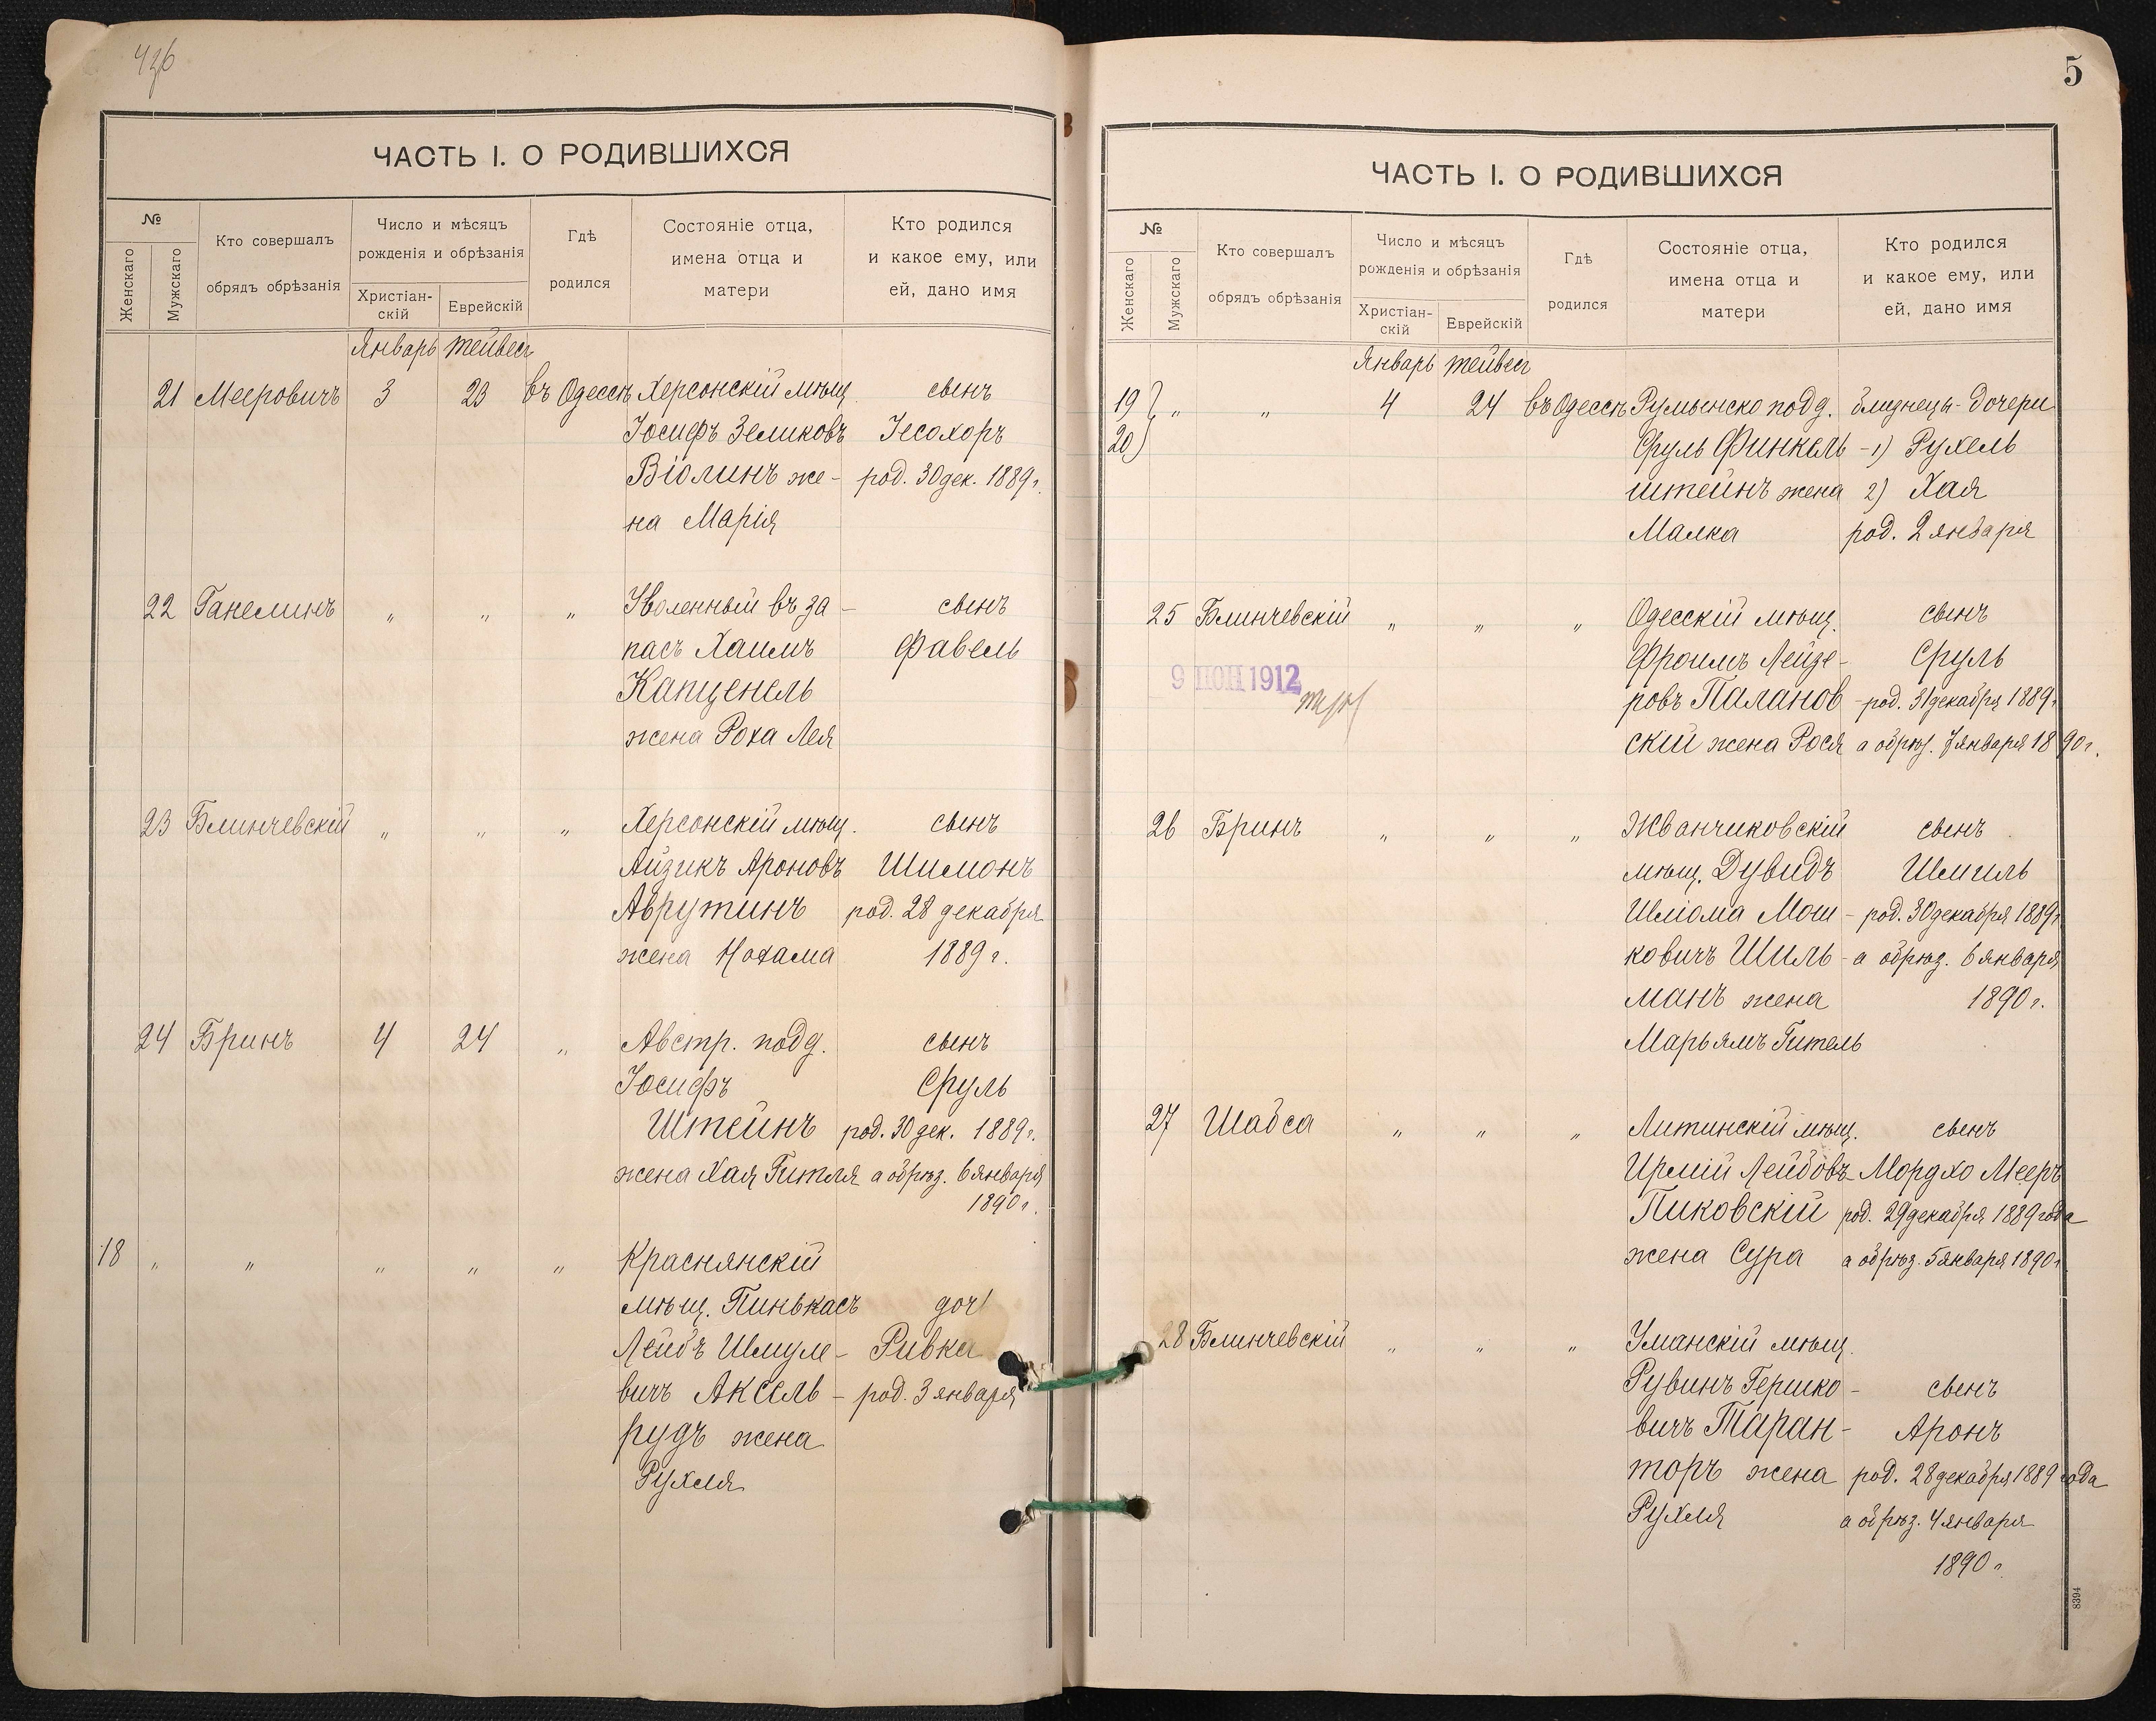 ЧАСТЬ I. О РОДИВШИХСЯ
№
Женскаго
Мужскаго
Кто совершалъ
обрядъ обрѣзанія
Число и мѣсяцъ
рожденія и обрѣзанія
Христіан-
скій
Еврейскій
Гдѣ
родился
Состояніе отца,
имена отца и
матери
Кто родился
и какое ему, или
ей, дано имя
Январь тейвес
21 Мееровичъ 3 23 въ Одессѣ Херсонскій мѣщ. сынъ
Іосифъ Зеликовъ Іесохоръ
Віолинъ же- род. 30 дек. 1889 г.
на Марія
22 Ганелинъ " " " Уволенный въ за- сынъ
пасъ Хаимъ Фавель
Капценель
жена Роха Лея
23 Блинчевскій " " " Херсонскій мѣщ. сынъ
Айзикъ Ароновъ Шимонъ
Аврутинъ род. 28 декабря
жена Нохама 1889 г.
24 Бринъ 4 24 " Австр. подд. сынъ
Іосифъ Сруль
Штейнъ род. 30 дек. 1889 г.
жена Хая Гитля а обрѣз. 6 января
1890 г.
18 " " " " " Краснянскій
мѣщ. Пинькасъ доч
Лейбъ Шмуле- Ривка
вичъ Аксель- род. 3 января
рудъ жена
Рухля
5
ЧАСТЬ I. О РОДИВШИХСЯ
№
Женскаго
Мужскаго
Кто совершалъ
обрядъ обрѣзанія
Число и мѣсяцъ
рожденія и обрѣзанія
Христіан-
скій
Еврейскій
Гдѣ
родился
Состояніе отца,
имена отца и
матери
Кто родился
и какое ему, или
ей, дано имя
Январь тейвес
19 } " " 4 24 въ Одессѣ Румынско подд. близнецы-дочери
20 Сруль Финкель- 1) Рухель
штейнъ жена 2) Хая
Малка род. 2 января
25 Блинчевскій " " " Одесскій мѣщ. сынъ
Фроимъ Лейзе- Сруль
9 ІЮН 1912
ровъ Паланов- род. 31 декабря 1889 г.
скій жена Рося а обрѣз. 7 января 1890 г.
26 Бринъ " " " Жванчиковскій сынъ
мѣщ. Дувидъ Шмиль
Шліома Мош- род. 30 декабря 1889 г.
ковичъ Шиль- а обрѣз. 6 января
манъ жена 1890 г.
Марьямъ Гитель
27 Шабса " " " Литинскій мѣщ. сынъ
Ирмій Лейбовъ Мордхо Мееръ
Пиковскій род. 29 декабря 1889 года
жена Сура а обрѣз. 5 января 1890 г.
28 Блинчевскій " " " Уманскій мѣщ.
Рувинъ Гершко- сынъ
вичъ Таран- Аронъ
торъ жена род. 28 декабря 1889 года
Рухля а обрѣз. 4 января
1890 г.
8394